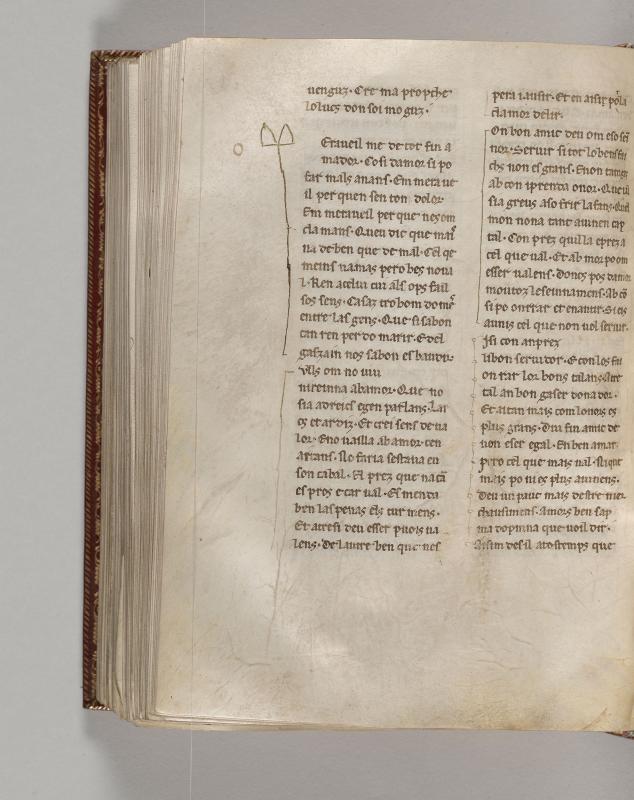 uenguz. Cre ma prophe
lo lucs don soi mo guz.
Eraueil me de tot fin a
mador. Co si damor si po
far mals anans. Em mera ue
il per quen sen ton dolor
Em meraueil per que nes om
cla mans. Qu eu dic que
na de ben que de mal. Cel qe
meins na mas pero bes noua
l. Ren acelui cui als ops fail
sos sens. Casaz tro bom do
entre las gens. Que si sabon
can ren per do marir. E del
gaszain nos sabon es baudir.
Als om no uiu
ni reinna ab amor. Que no
sia adreics e gen parlans. Lar
cs et ardiz. Et crei sens de ua
lor. E no uailla ab amor cen
aitans. No faria sestaua en
son cabal. El prez que na
es pros e car ual. Es menda
ben las penas els tur mens.
Et atresi deu esser puois ua
lens. de laurre ben que nes
pera iausir. Et en aisir
clamor delir.
On bon amic deu om eso
nor. Seruir si tot lo ben
chs non es grans. E non
ab con iprenda onor. Que
sia greus aso frir lafans.
mon nona tant auinen cap
tal. Con prez qui lla epreza
cel que ual. Et ab mor po om
esser ualens. donc pos damor
mou toz le seinnamens.
si po onrrar et enantir.
aunis cel que non uol seruir.
Isi con an prez
li bon seruidor. E con los
on rar lor bons talans
tal an bon gaser dona dor.
Et ai tan mais com lonors es
plus grans. Deu fin amic de
uon eser egal. En ben amar
pero cel que mais ual.
mais po ni es plus auinens.
deu un pauc mais desire
chausimens. amors ben sap
ma dopmna que uoil dir.
Aisim des il ato stemps que